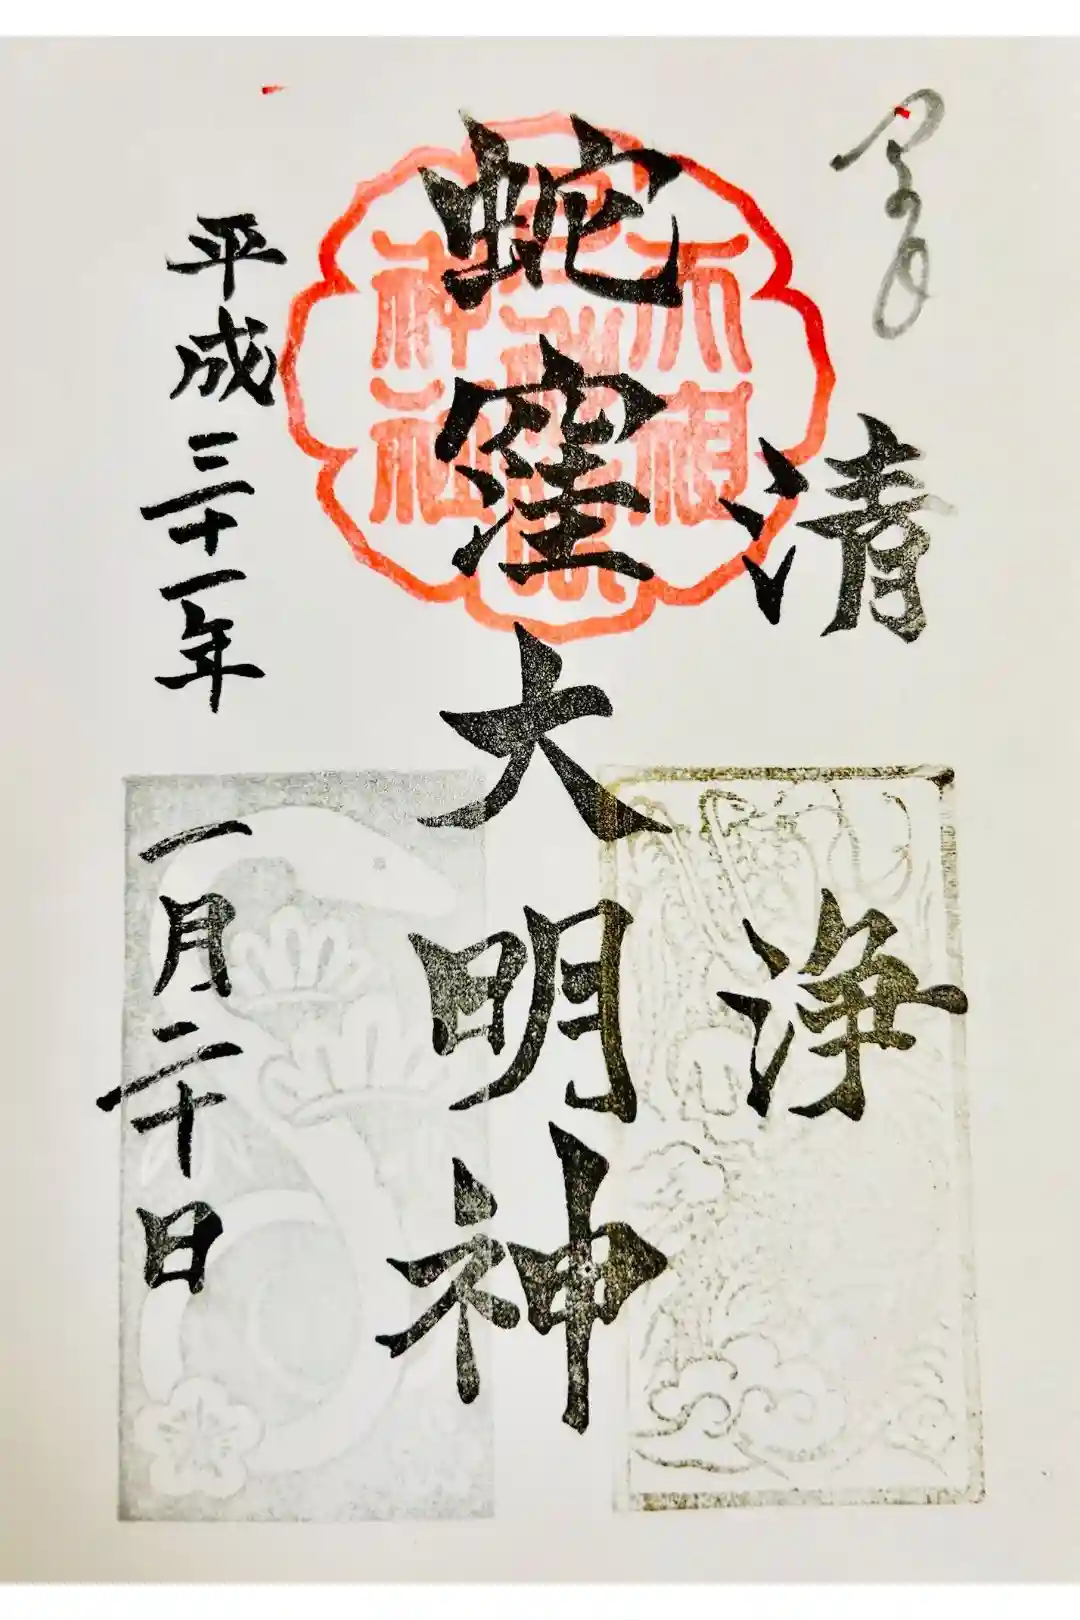 清浄
蛇窪大明神
天祖神社
平成三十一年一月二十日